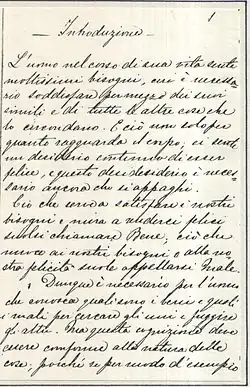 1
— Introduzione —
L'uomo nel corso di sua vita sente
moltissimi bisogni, cui è necessa=
rio soddisfare per mezzo dei suoi
simili e di tutte le altre cose che
lo circondano. E ciò non solo per
quanto ragguarda il corpo; ei sente
un desiderio continuo di esser
felice, e questo desiderio è neces=
sario ancora che si appaghi.
Ciò che serve a satisfare i nostri
bisogni e mira a renderci felici
suolsi chiamare Bene; ciò che
nuoce ai nostri bisogni e alla no
stra felicità suole appellarsi Male.
Dunque è necessario per l'uomo
che conosca quali sono i beni e quali
i mali per cercare gli uni e fuggire
gli altri. Ma questa cognizione deve
essere conforme alla natura delle
cose; poiché se per modo d'esempio